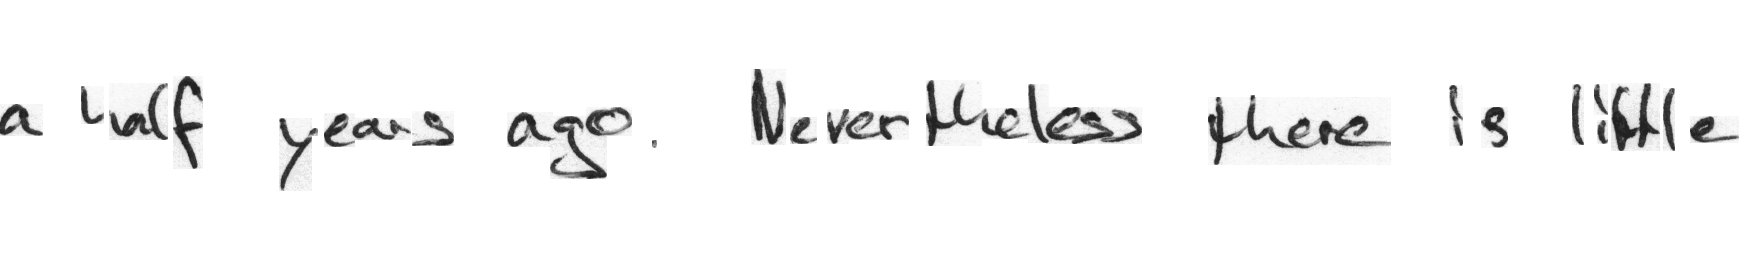 a half years ago. Nevertheless there is little